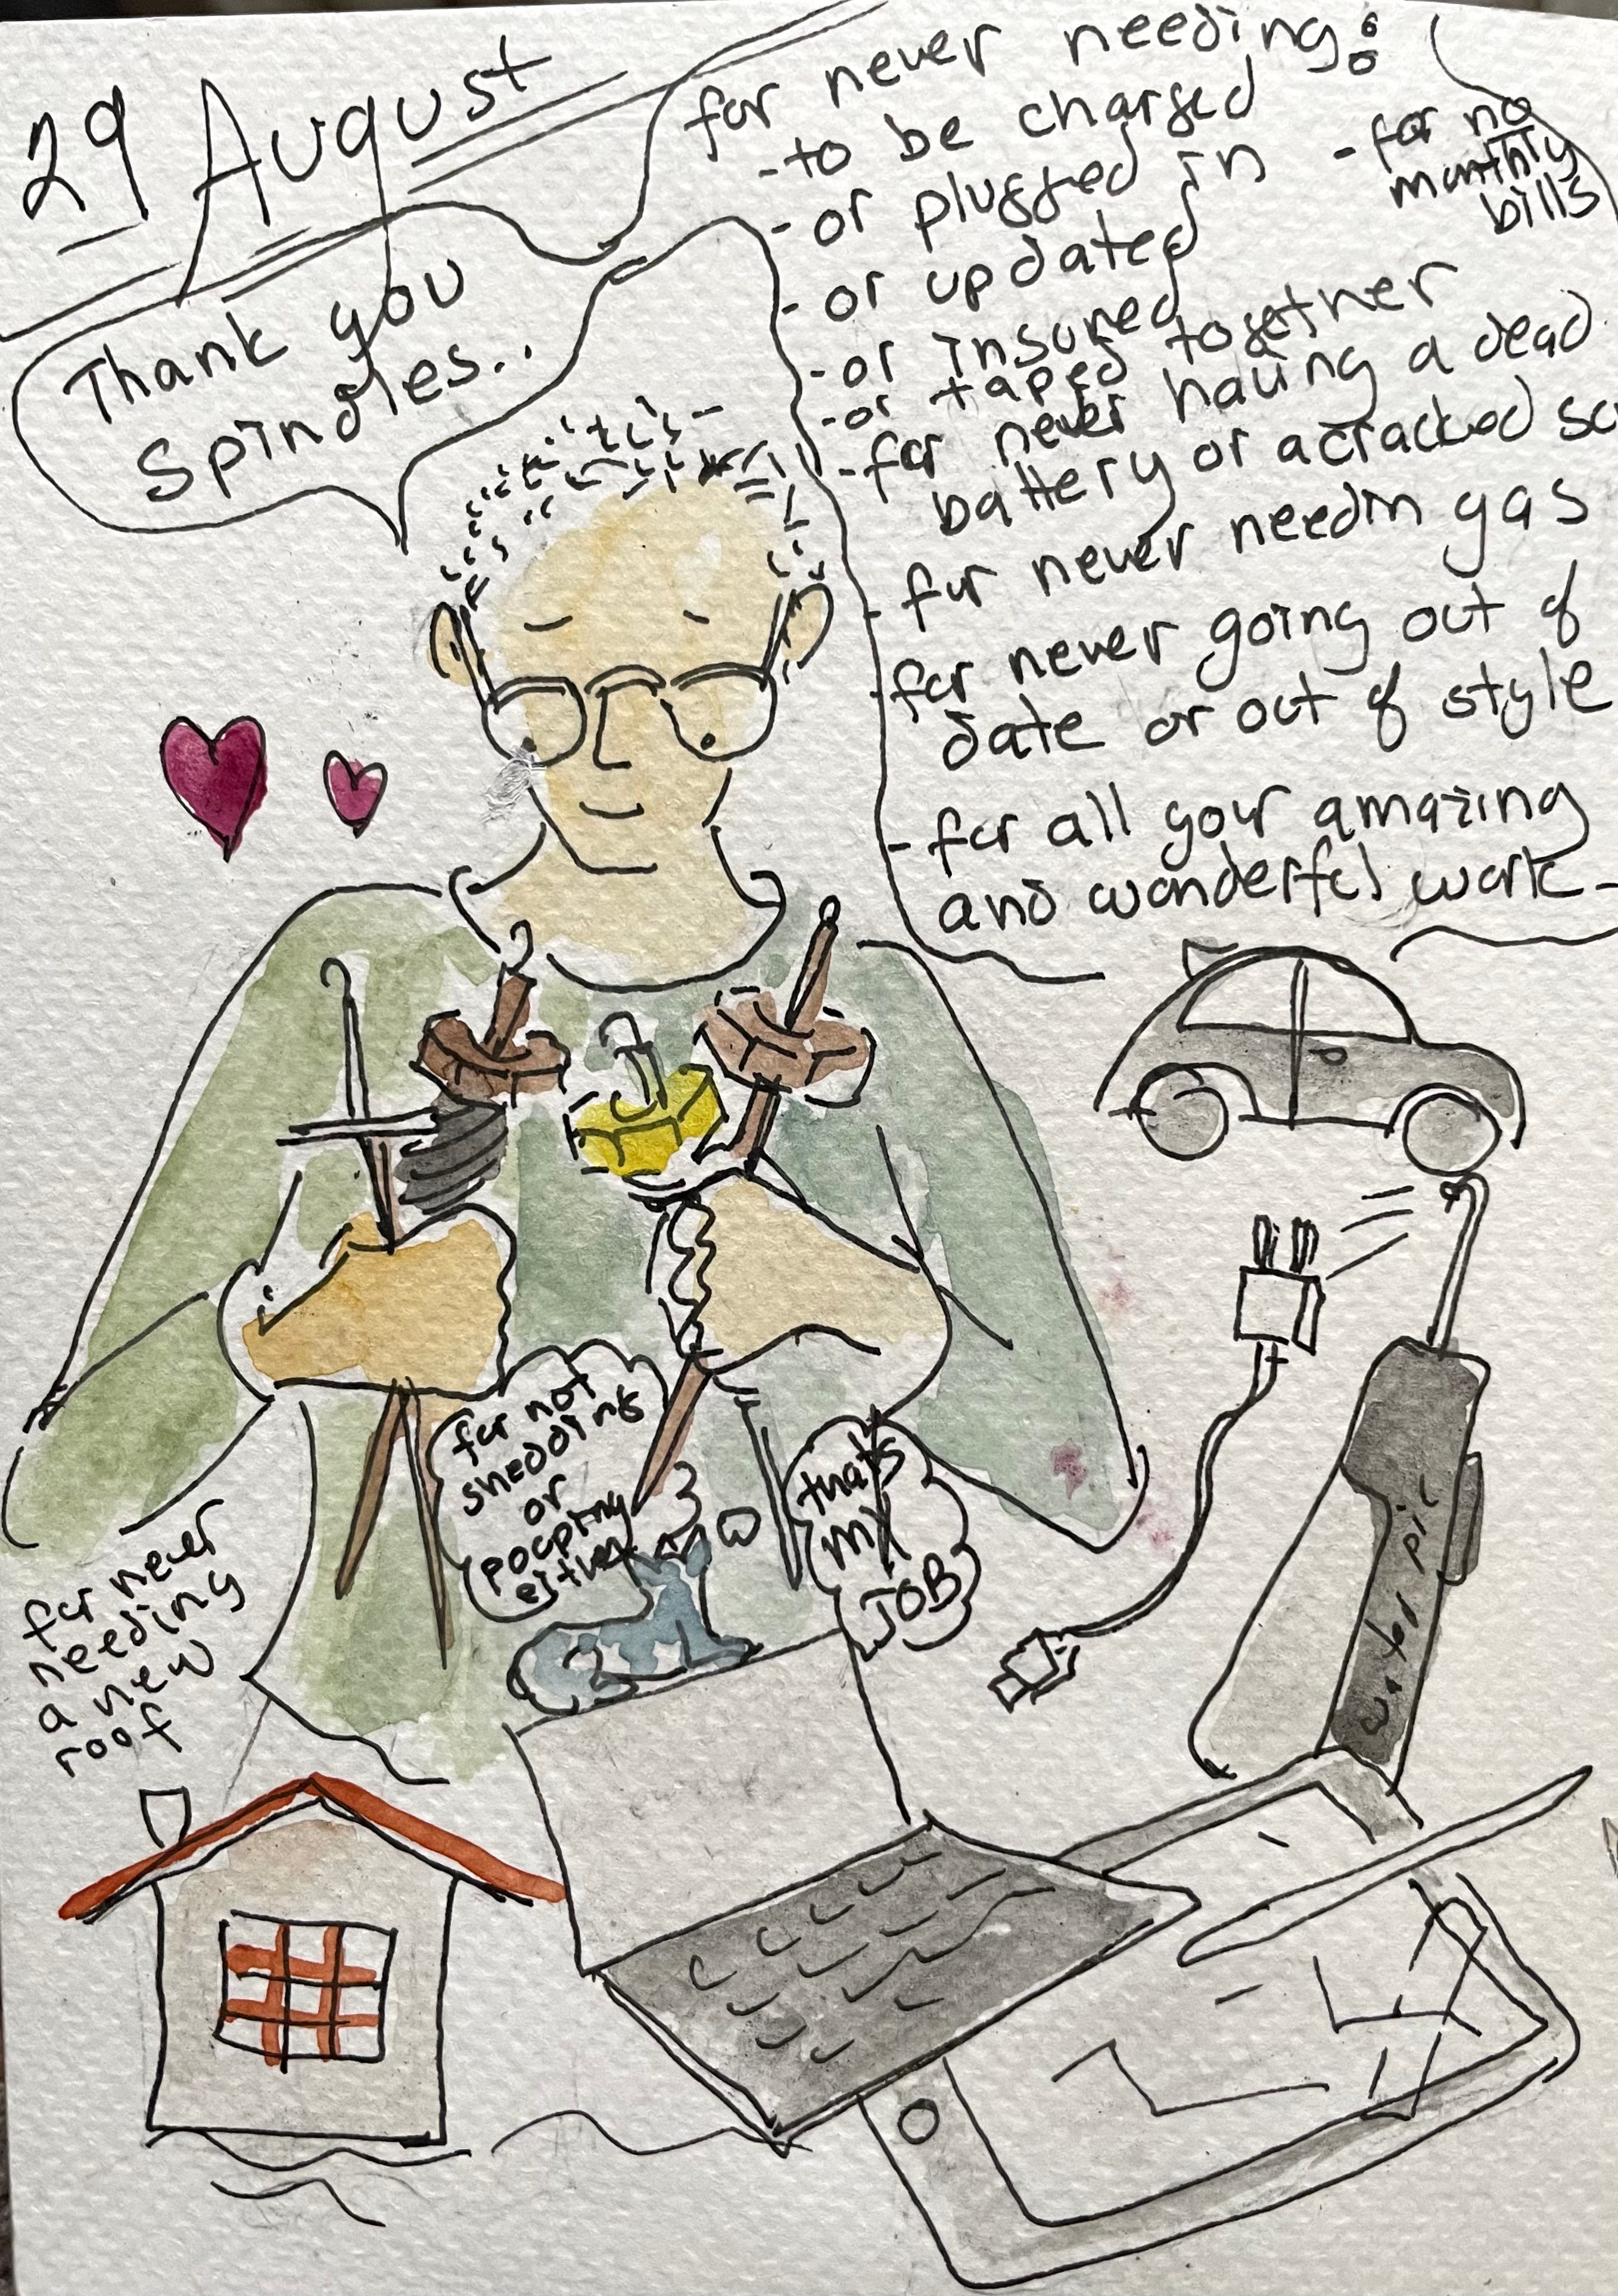 29 August
Thank you
Spindles..
for never needing:
-to be charged
-or plugged in
-or updated
-or insured
-or taped together
-for never having a dead
battery or a cracked
-for never needin gas
-for never going out of
date or out of style
-for all your amazing
and wonderful work-
-for no
monthly
bills
for not
shedding
or
pooping
either
thats
my
JOB
for never
needing
a new
roof
water pic